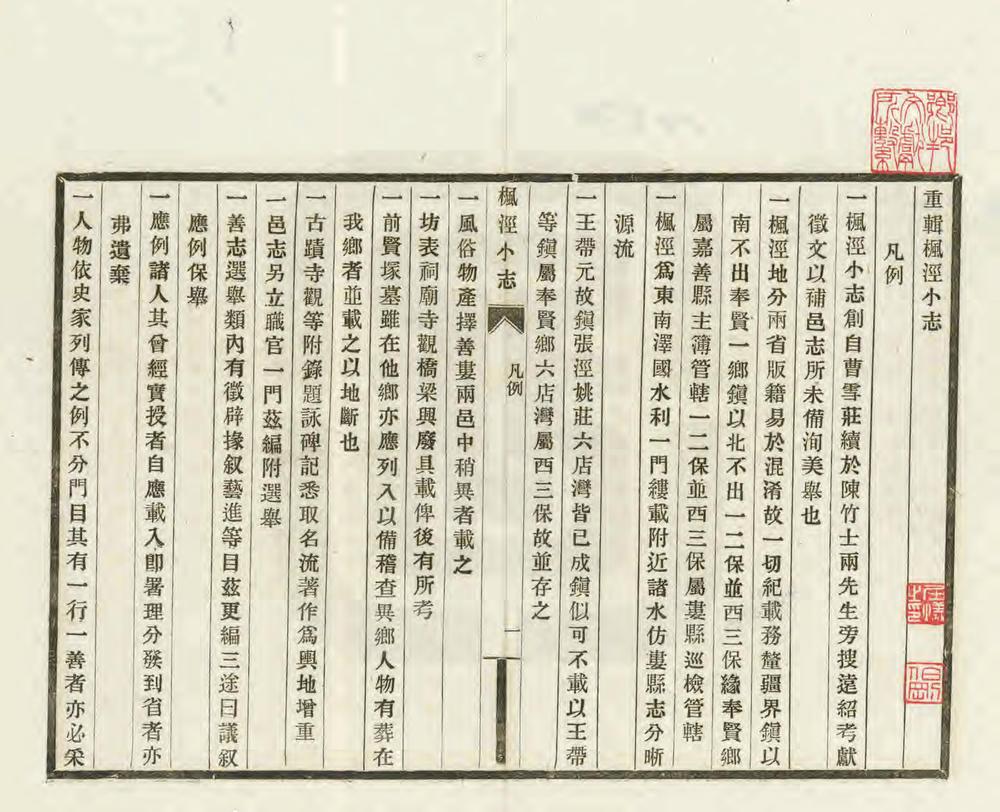 重輯楓涇小志
凡例
一楓涇小志創自曹雪莊續於陳竹士兩先生旁搜遠紹考獻
徵文以補邑志所未備洵美舉也
一楓涇地分兩省版籍易於混淆故一切紀載務釐疆界鎮以
南不出奉賢一鄉鎮以北不出一二保並西三保緣奉賢鄉
屬嘉善縣主簿管轄一二保並西三保屬婁縣巡檢管轄
一楓涇爲東南澤國水利一門縷載附近諸水仿婁縣志分晰
源流
一王帶元故鎮張涇姚莊六店灣皆已成鎮似可不載以王帶
等鎮屬奉賢鄉六店灣屬西三保故並存之
楓涇小志
凡例
一
一風俗物產擇善婁兩邑中稍異者載之
一坊表祠廟寺觀橋梁興廢具載俾後有所考
一前賢塚墓雖在他鄉亦應列入以備稽查異鄉人物有葬在
我鄉者並載之以地斷也
一古蹟寺觀等附錄題詠碑記悉取名流著作爲輿地增重
一邑志另立職官一門茲編附選舉
一善志選舉類內有徵辟掾叙藝進等目茲更編三途曰議叙
應例保舉
一應例諸人其曾經實授者自應載入卽署理分發到省者亦
弗遺棄
一人物依史家列傳之例不分門目其有一行一善者亦必采